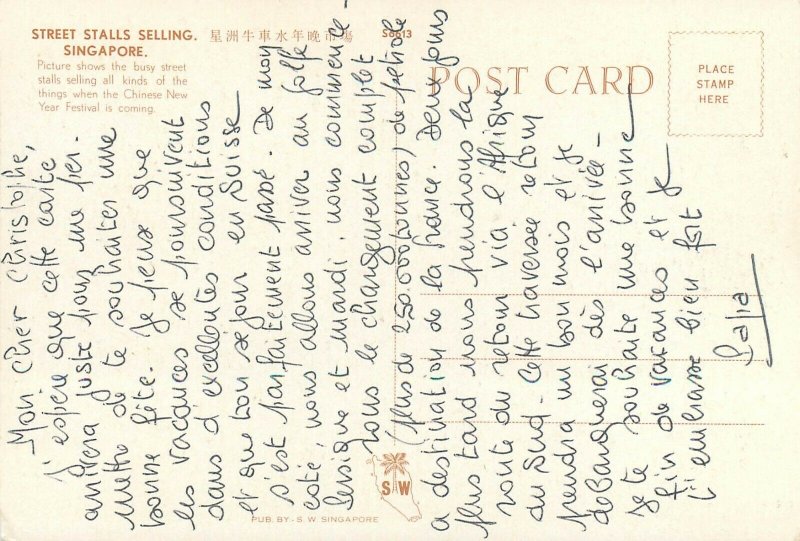 STREET STALLS SELLING.
SINGAPORE.
星洲牛車水年晚市場
S6613
Picture shows the busy street
stalls selling all kinds of the
things when the Chinese New
Year Festival is coming.
POST CARD
PLACE
STAMP
HERE
Mon cher Christophe,
J'espère que cette carte
arrivera juste pour me per.
mettre de te souhaiter une
bonne fête. Je pense que
les vacances se poursuivent
dans d'excellentes conditions
et que ton séjour en Suisse
s'est parfaitement passé. De mon
coté, nous allons arriver au golfe
Persique et mardi, nous commence-
rons le chargement complet
(plus de 250.000 tonnes) de pétrole
a destination de la france. Deux jours
plus tard nous prendrons la
route du retour via l'Afrique
du Sud. Cette traversée retour
prendra un bon mois et je
debarquerai dès l'arrivée-
Je te souhaite une bonne
fin de vacances et je
t'embrasse bien fort
Papa
S W
PUB. BY.- S. W. SINGAPORE